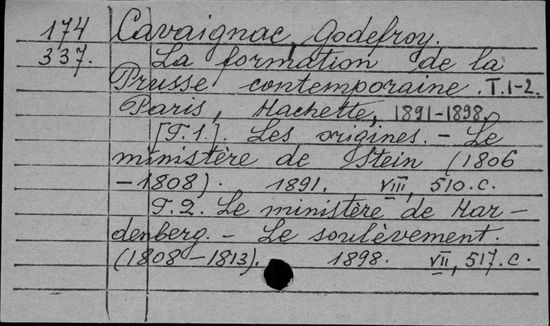 174 Cavaignac, Godefroy.
337. La formation de la
Prusse contemporaine. T.1-2.
Paris, Hachette, 1891-1898.
[T.1.]. Les origines. – Le
ministère de Stein (1806
–1808). 1891. VIII, 510.c.
T.2. Le ministère de Har–
denberg. – Le soulèvement.
(1808–1813). 1898. VII, 517.c.